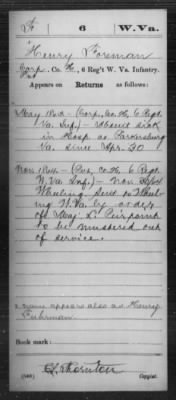 F 6 W.Va.
Henry Forsman
Corp., Co. H, 6 Reg't W. Va. Infantry.
Appears on
Returns as follows:
May 186 - (Corp, Co. H, 6 Regt
Va. Inf.) - Absent sick
in Hosp at Parkersburg
Va. since Apr. 30
Nov 186 - (Pvt, Co. H, 6 Regt
W. Va. Inf.) - Nov
Wheeling Sent to Wheel-
ing W. Va. by order
of Maj. L. Pierpoint
to be mustered out
of service.
name appears also as Henry
Fuhrman.
Book mark:
Thornton
(546) Copyist.